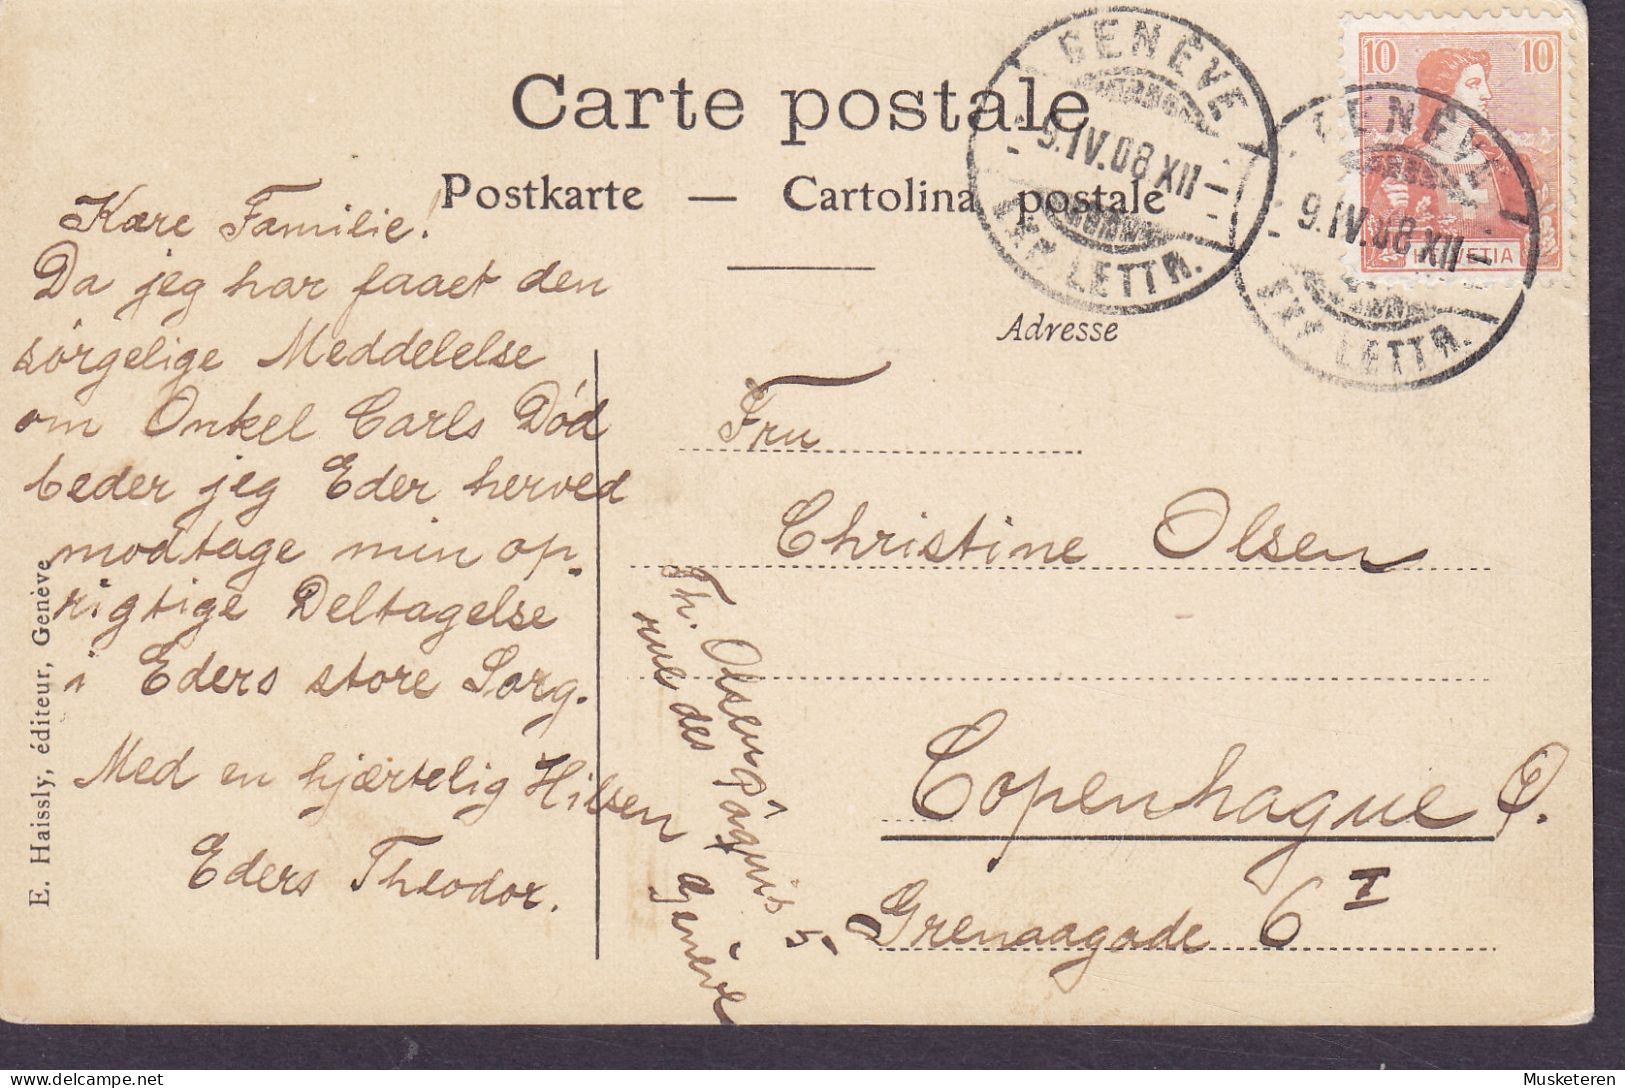 Carte postale
Postkarte — Cartolina postale
GENÈVE
9.IV.08 XII
EXP. LETTR.
GENÈVE
9.IV.08 XII
EXP. LETTR.
10 10
HELVETIA
Adresse
Kære Familie!
Da jeg har faaet den
sörgelige Meddelelse
om Onkel Carls Död
beder jeg Eder herved
modtage min op-
rigtige Deltagelse
i Eders store Sorg.
Med en hjærtelig Hilsen
Eders Theodor.
Th. Olsen
rue des Pâquis 5
Genève
Fru
Christine Olsen
Copenhague Ø.
Grenaagade 6 I
E. Haissly, éditeur, Genève
Musketeren delcampe.net